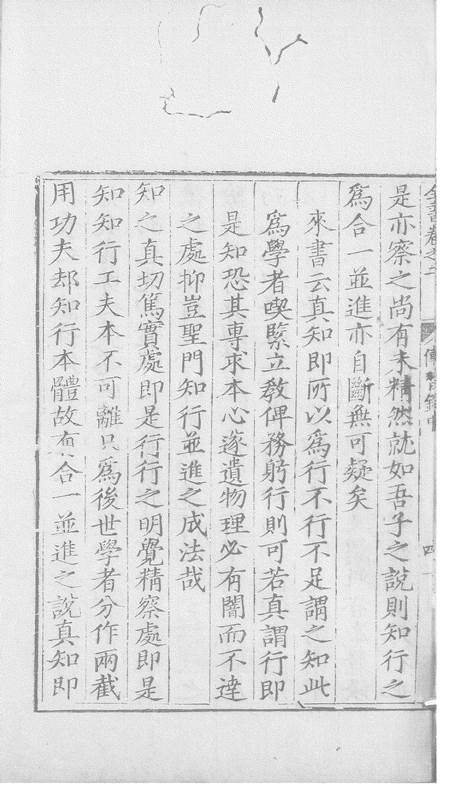 全書卷之二 傳習錄中 四
是亦察之尚有未精然就如吾子之說則知行之
爲合一並進亦自斷無可疑矣
來書云真知即所以爲行不行不足謂之知此
爲學者喫緊立教俾務躬行則可若真謂行即
是知恐其專求本心遂遺物理必有闇而不達
之處抑豈聖門知行並進之成法哉
知之真切篤實處即是行行之明覺精察處即是
知知行工夫本不可離只爲後世學者分作兩截
用功失却知行本體故有合一並進之說真知即